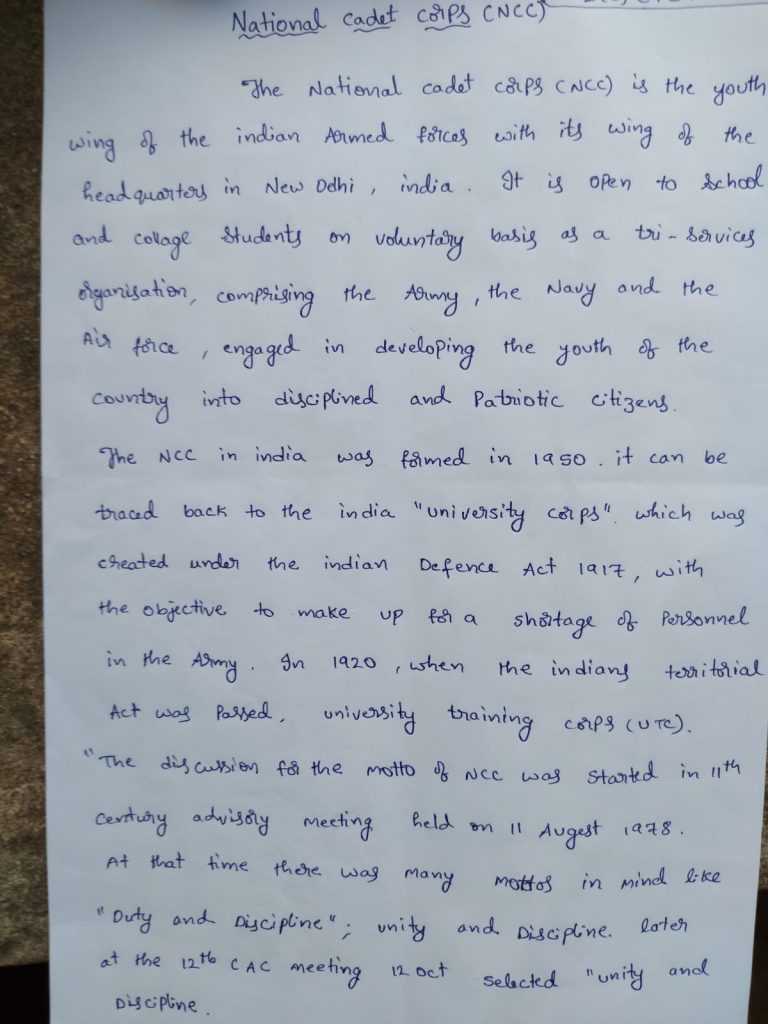 National cadet corps (NCC)
The National cadet corps (NCC) is the youth
wing of the indian Armed forces with its wing of the
headquarters in New Delhi, india. It is open to School
and collage Students on voluntary basis as a tri-Services
organisation, comprising the Army, the Navy and the
Air force, engaged in developing the youth of the
country into disciplined and Patriotic citizens.
The NCC in india was formed in 1950. it can be
traced back to the india "university corps". which was
created under the indian Defence Act 1917, with
the objective to make up for a shortage of Personnel
in the Army. In 1920, when the indians territorial
Act was Passed, university training corps (UTC).
"The discussion for the motto of NCC was Started in 11th
Century advisory meeting held on 11 Augest 1978.
At that time there was many mottos in mind like
"Duty and Discipline"; unity and Discipline. later
at the 12th CAC meeting 12 oct selected "unity and
Discipline.